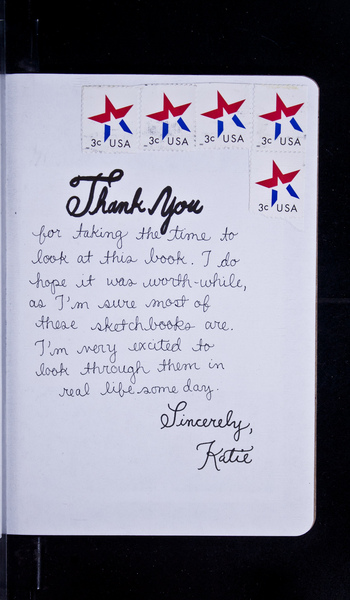 3c USA 3c USA 3c USA 3c USA
3c USA
Thank You
for taking the time to
look at this book. I do
hope it was worth-while,
as I'm sure most of
these sketchbooks are.
I'm very excited to
look through them in
real life some day.
Sincerely,
Katie